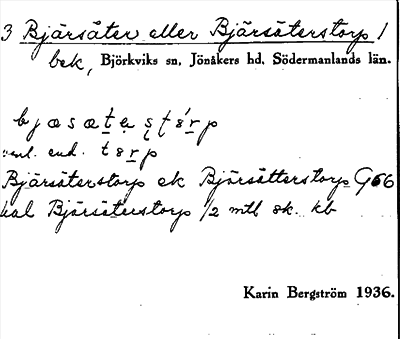 3 Bjärsäter eller Bjärsäterstorp 1
bek, Björkviks sn, Jönåkers hd, Södermanlands län.
t s r p
Bjärsäterstorp ek Bjärsätterstorp G66
kal Bjärsäterstorp 1/2 mtl sk. kb
Karin Bergström 1936.